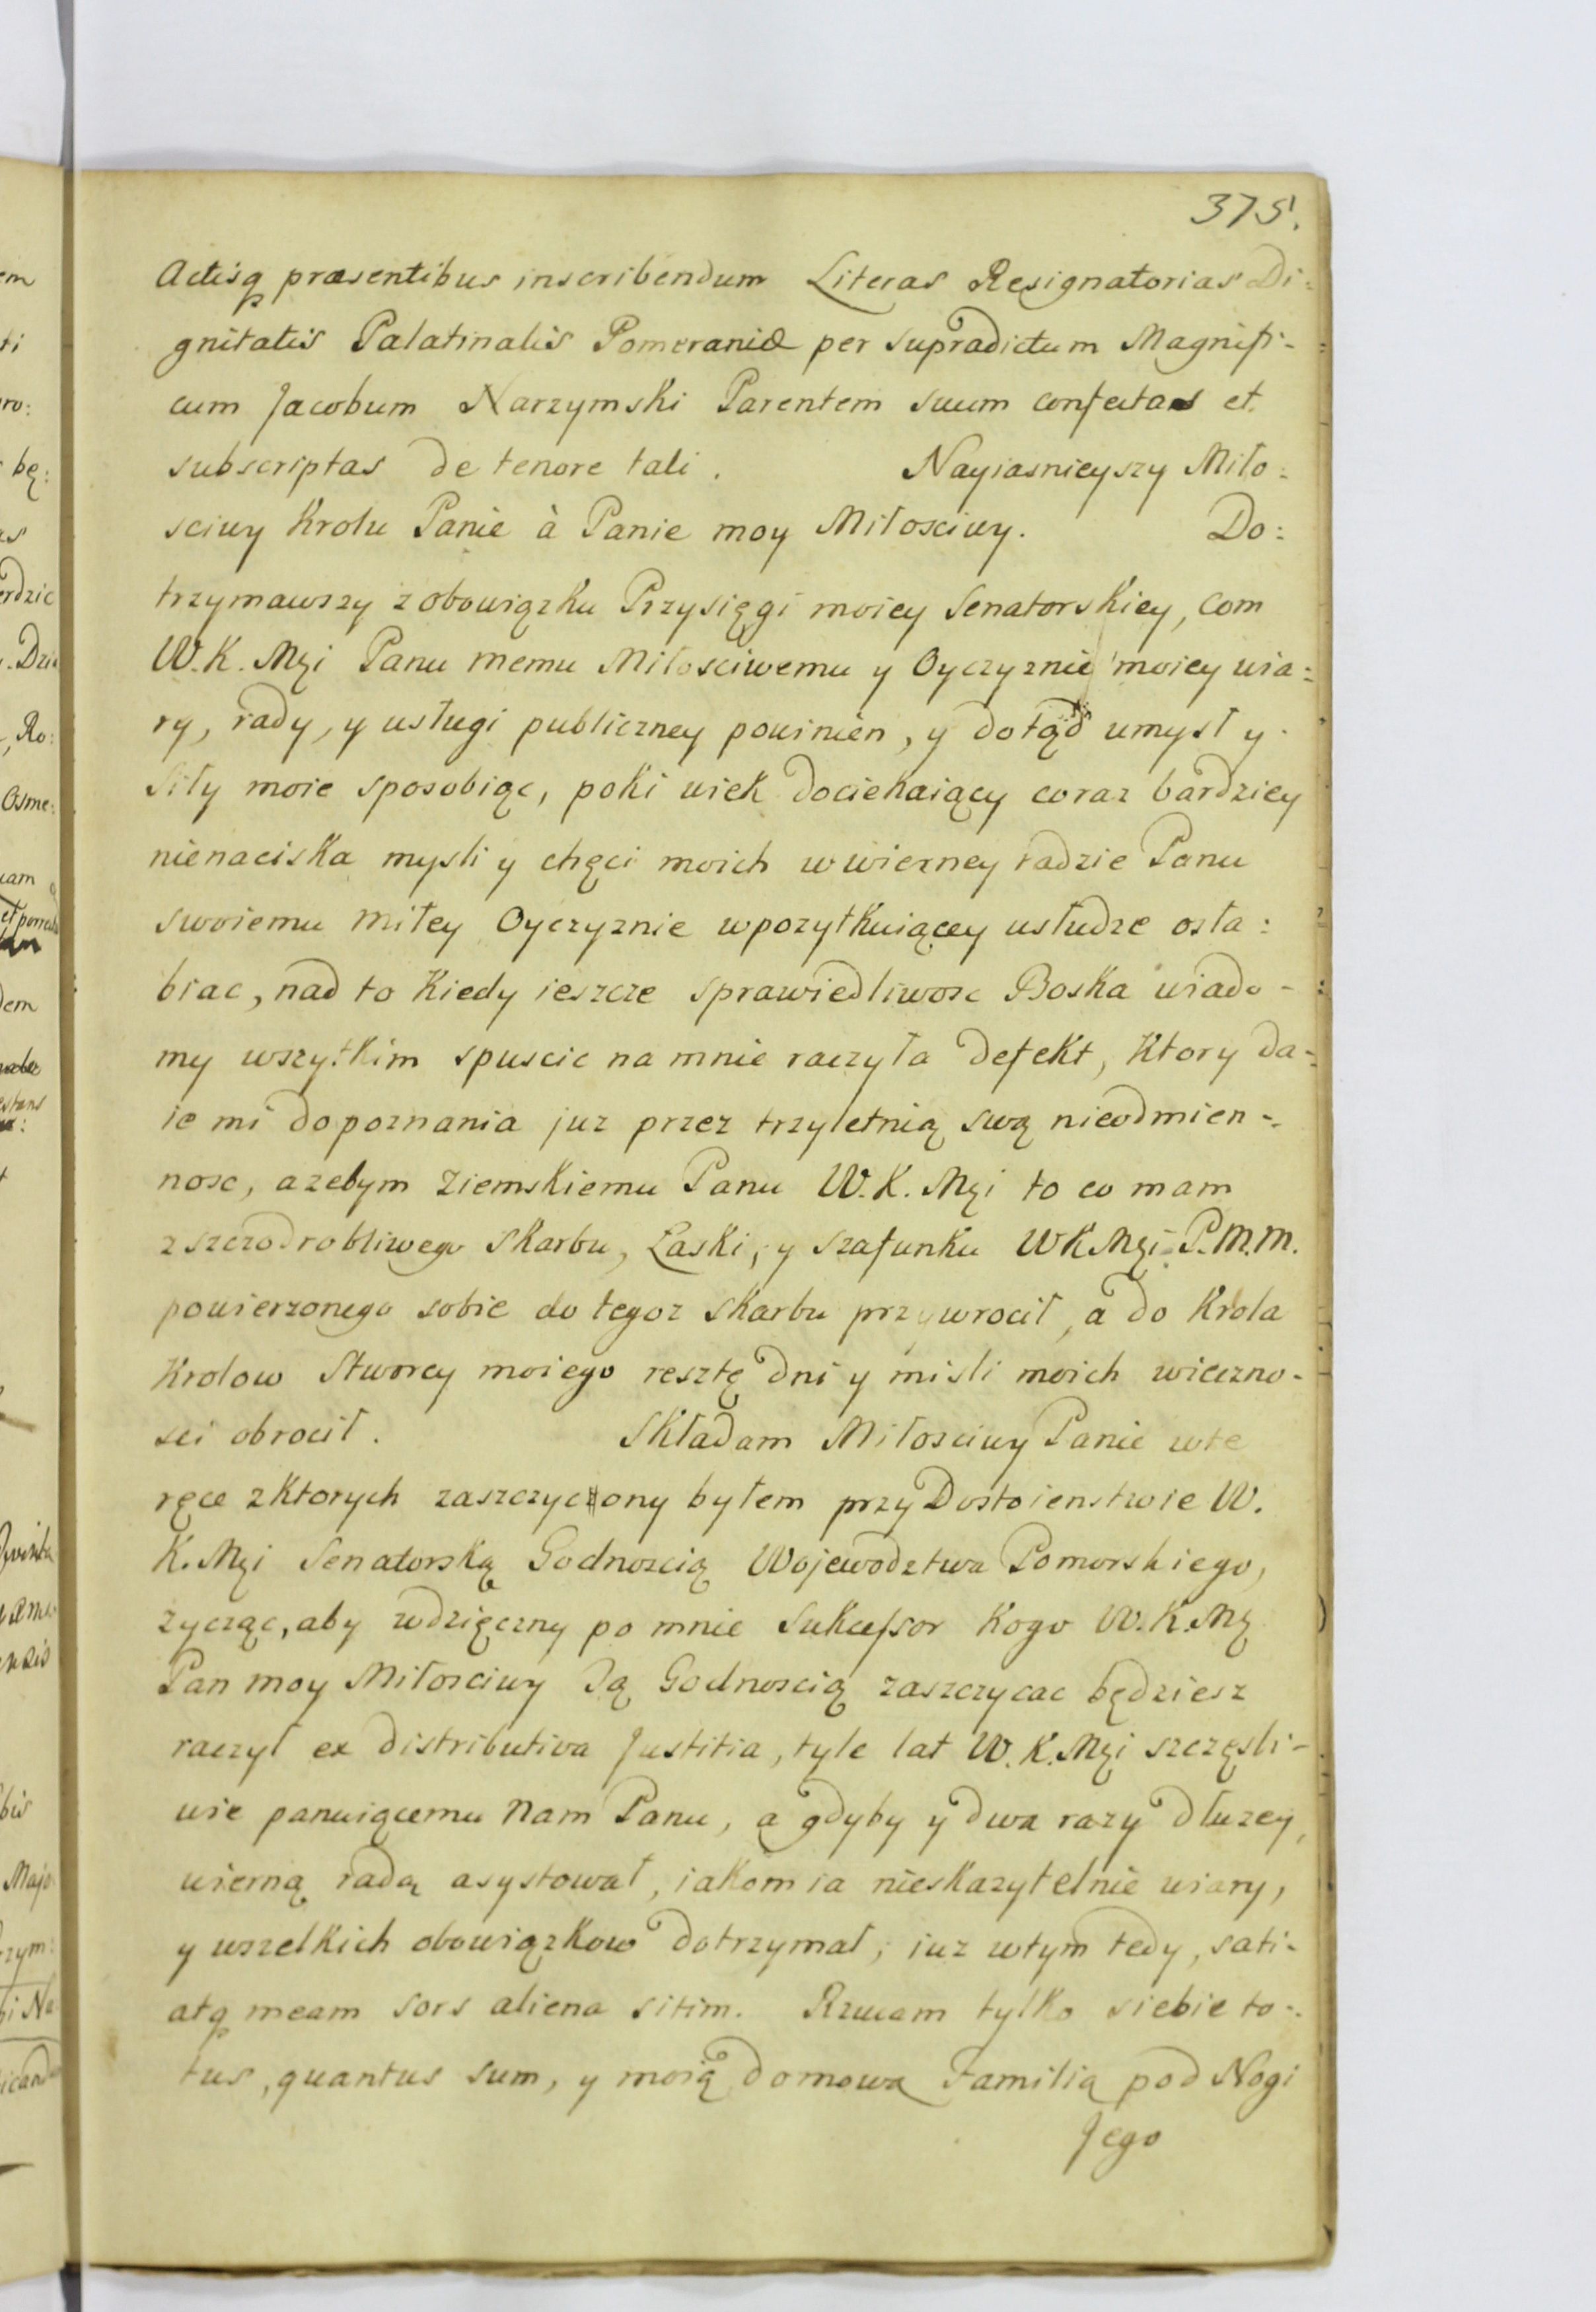 375.
Actisq praesentibus inscribendum Literas Resignatorias Di:
gnitatis Palatinalis Pomeraniæ per supradictum Magnifi-
cum Jacobum Narzymski Parentem suum confectas et
subscriptas de tenore tali. Nayiasnieyszy Miło:
sciwy Krolu Panie à Panie moy Miłosciwy. Do:
trzymawszy z obowiązku Przysięgi moiey Senatorskiey, com
W.K. Mći Panu memu Miłosciwemu y Oyczyznie moiey wia:
ry, rady, y usługi publiczney powinien, y dotąd umysł y
siły moie sposobiąc, poki wiek dociekaiący coraz bardziey
nienaciska mysli y chęci moich w wierney radzie Panu
swoiemu miłey Oyczyznie wpozytkuiącey usłudze osła:
biac, nad to Kiedy ieszcze sprawiedliwosc Boska wiado-
my wszytkim spuscic na mnie raczyła defekt, Ktory da-
ie mi do poznania juz przez trzyletnią swą nieodmien-
nosc, azebym Ziemskiemu Panu W.K. Mći to co mam
z szczodrobliwego Skarbu, Łaski, y szafunku WK Mći P.M.M.
powierzonego sobie do tegoz skarbu przywrocił, a do Krola
Krolow Stworcy moiego resztę dni y misli moich wieczno-
sci obrocił. Składam Miłosciwy Panie w te
ręce z Ktorych zaszczyczony byłem przy Dostoienstwie W.
K. Mći Senatorską Godnoscią Wojewodztwa Pomorskiego,
zycząc, aby wdzięczny po mnie Sukcessor Kogo W.K. Mć
Pan moy Miłosciwy Tą Godnoscią zaszczycac będziesz
raczył ex distributiva Justitia, tyle lat W.K. Mći szczęsli-
wie panuiącemu Nam Panu, a gdyby y dwa razy dłuzey,
wierną radą asystował, iakom ia nieskazytelnie wiary,
y wszelkich obowiązkow dotrzymał, iuz w tym tedy, sati-
atq meam sors aliena sitim. Rzucam tylko siebie to-
tus, quantus sum, y moią domową Familią pod Nogi
Jego